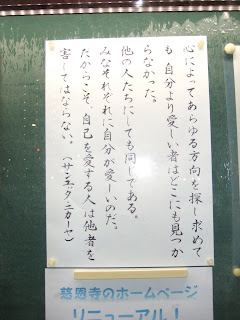 心によってあらゆる方向を探し求めて
も自分より愛しい者はどこにも見つか
らなかった。
他の人たちにしても同じである。
みなそれぞれに自分が愛しいのだ。
だからこそ、自己を愛する人は他者を
害してはならない。 (サンユッタ・ニカーヤ)
慈恩寺のホームページ
リニューアル!